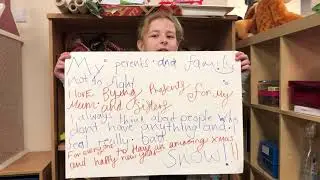 My parents and family
not to fight
I love Buying Presents for my
Mum and Sisters
I always think about people who
dont have anything and i
feel really bad
For everyone to Have an amazing xmas
and happy new year
SNOW!!